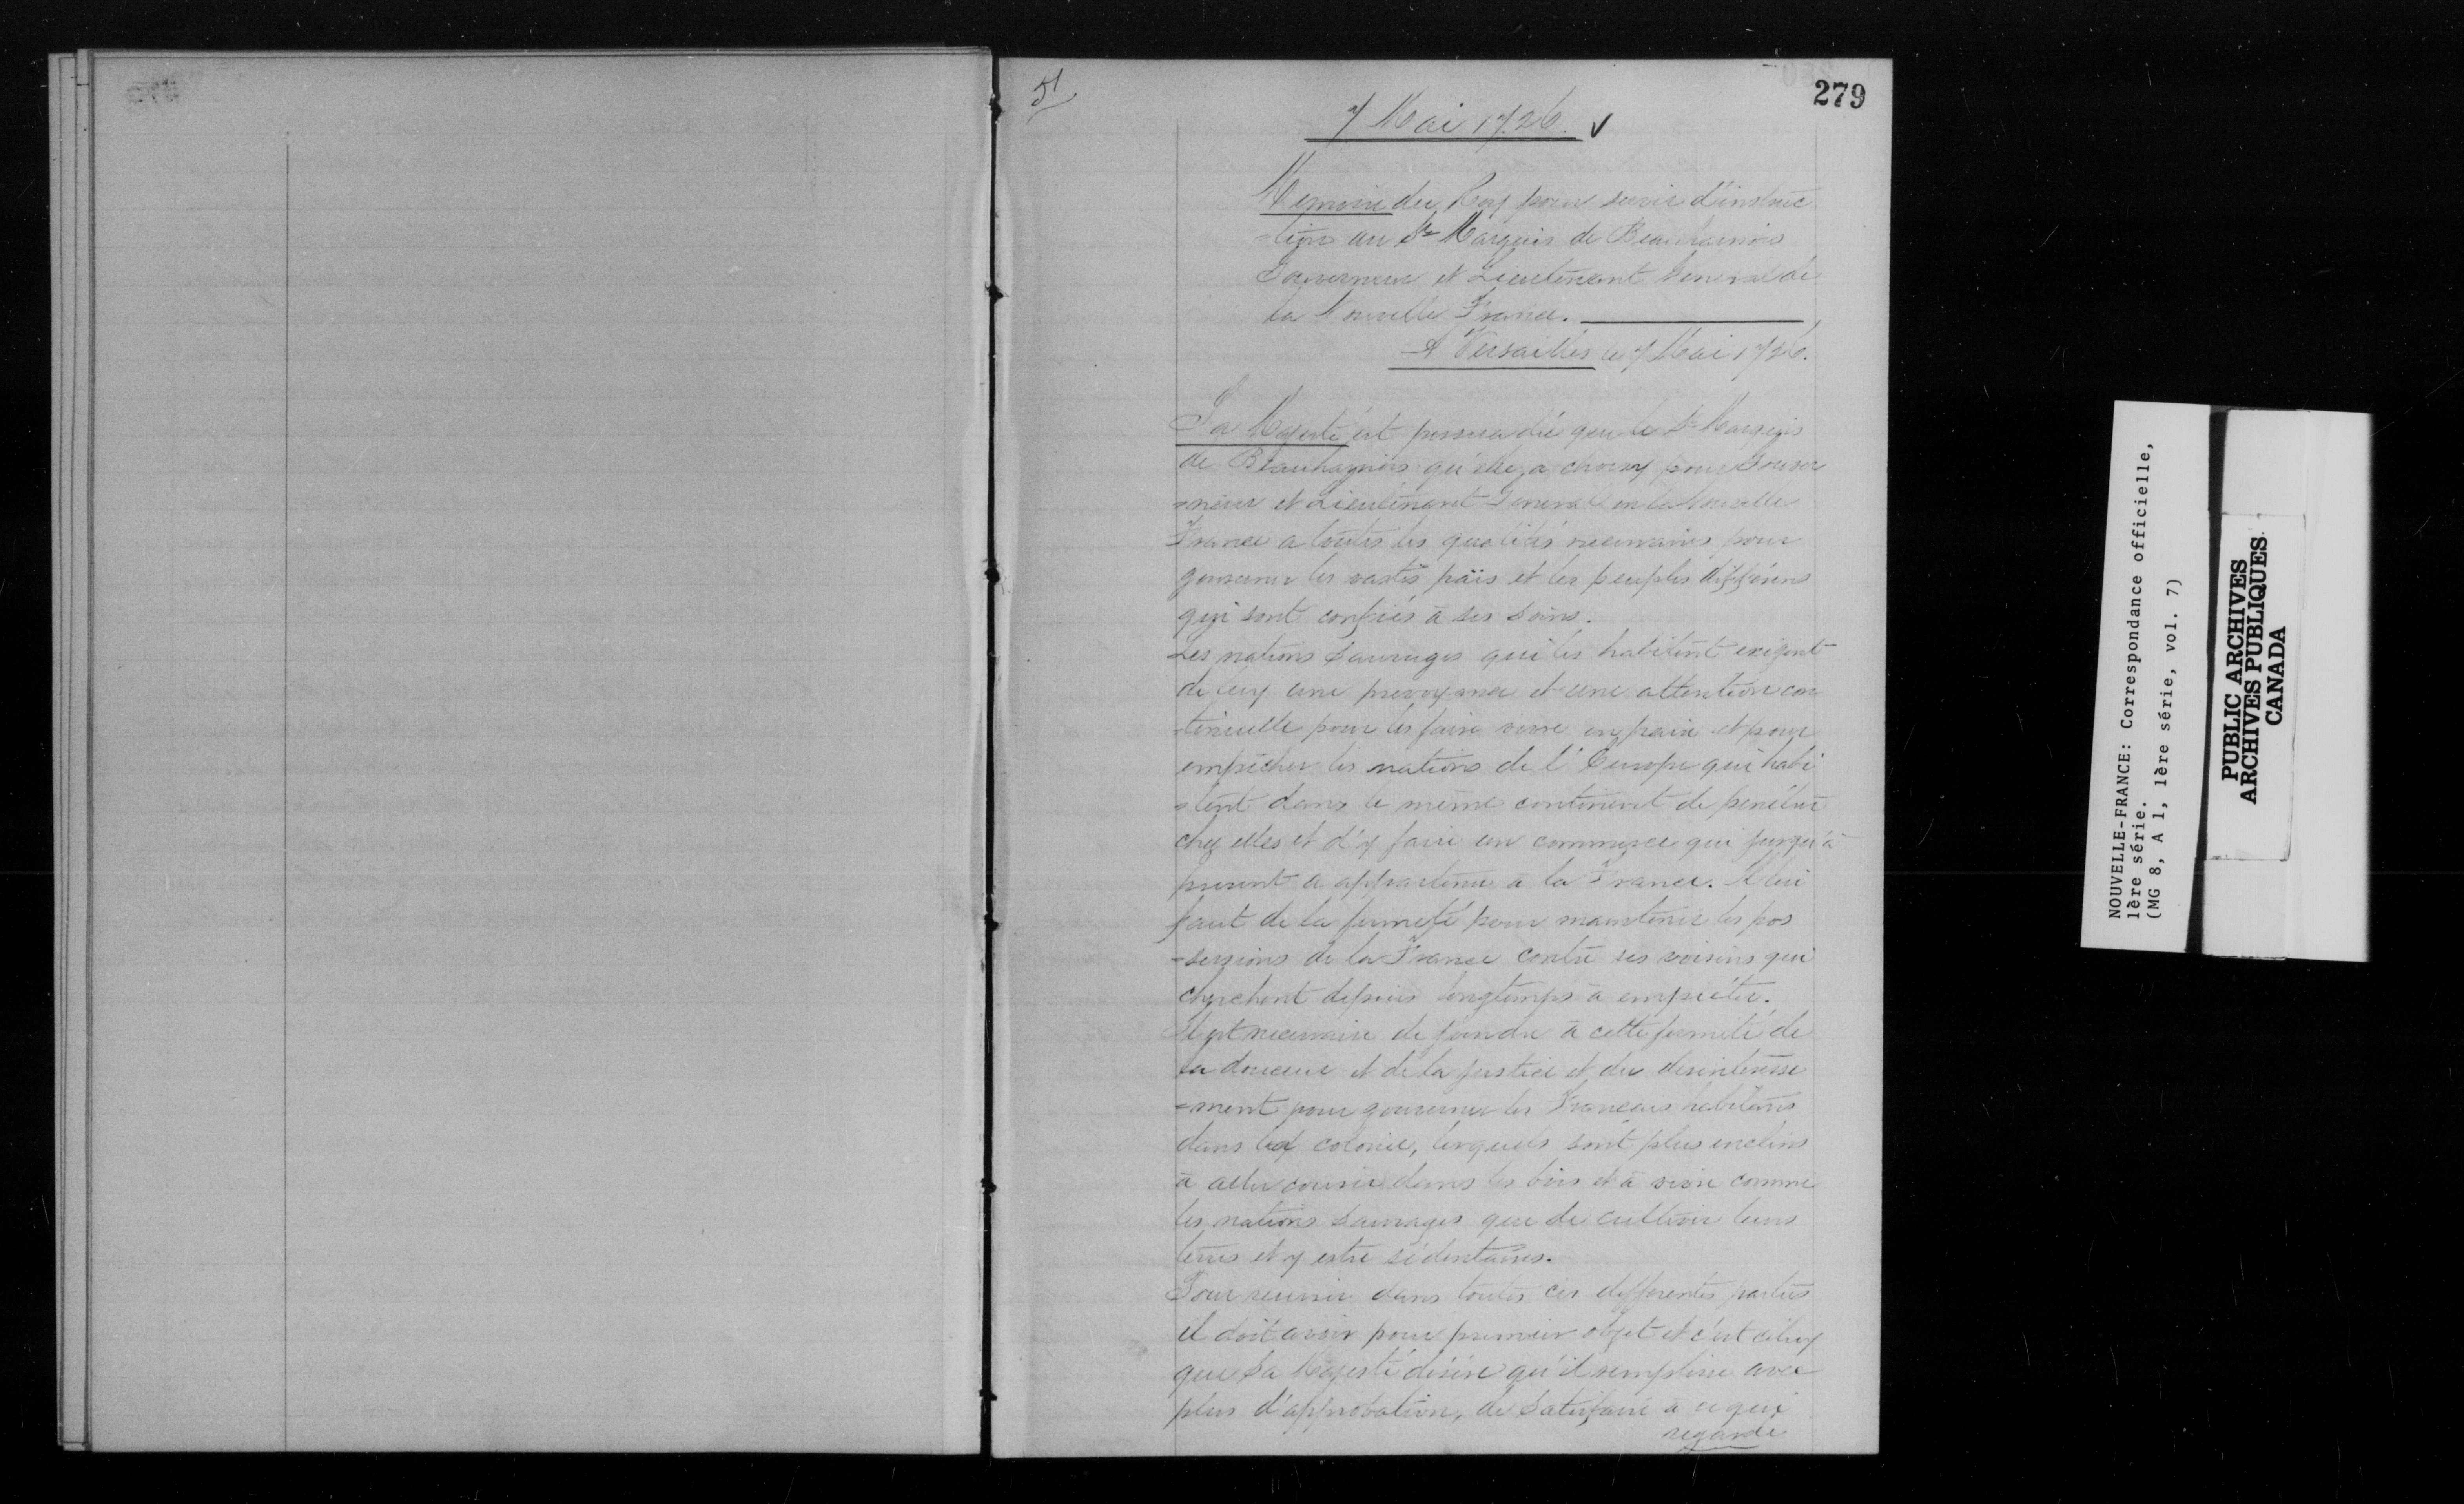 51
279
7 Mai 1726. v
Memoire du Roy pour servir d'instruc
-tion au Sr Marquis de Beauharnois
Gouverneur et Lieutenant General de
la Nouvelle France.
A Versailles le 7 Mai 1726.
Sa Majesté est persuadée que le Sr Marquis
de Beauharnois qu'elle a choisy pour Gouver
-neur et Lieutenant General en la Nouvelle
France a toutes les qualités necessaires pour
gouverner les vastes païs et les peuples différens
qui sont confiés à ses soins.
Les nations Sauvages qui les habitent exigent
de luy une prevoyance et une attention con
-tinuelle pour les faire vivre en paix et pour
empêcher les nations de l'Europe qui habi
-tent dans le même continent de penétrer
chez elles et d'y faire un commerce qui jusqu'à
present a appartenu à la France. Il lui
faut de la fermeté pour maintenir les pos
-sessions de la France contre ses voisins qui
cherchent depuis longtemps à empiéter.
Il est necessaire de joindre à cette fermeté de
la douceur et de la justice et du desinteresse
-ment pour gouverner les Francais habitans
dans la colonie, lesquels sont plus enclins
à aller courir dans les bois et à vivre comme
les nations Sauvages que de cultiver leurs
terres et y estre sédentaires.
Pour reussir dans toutes ces differentes parties
il doit avoir pour premier objet et c'est celuy
que Sa Majesté désire qu'il remplisse avec
plus d'approbation, de Satisfaire à ce qui
regarde
NOUVELLE-FRANCE: Correspondance officielle,
1ère série.
(MG 8, A 1, 1ère série, vol. 7)
PUBLIC ARCHIVES
ARCHIVES PUBLIQUES
CANADA